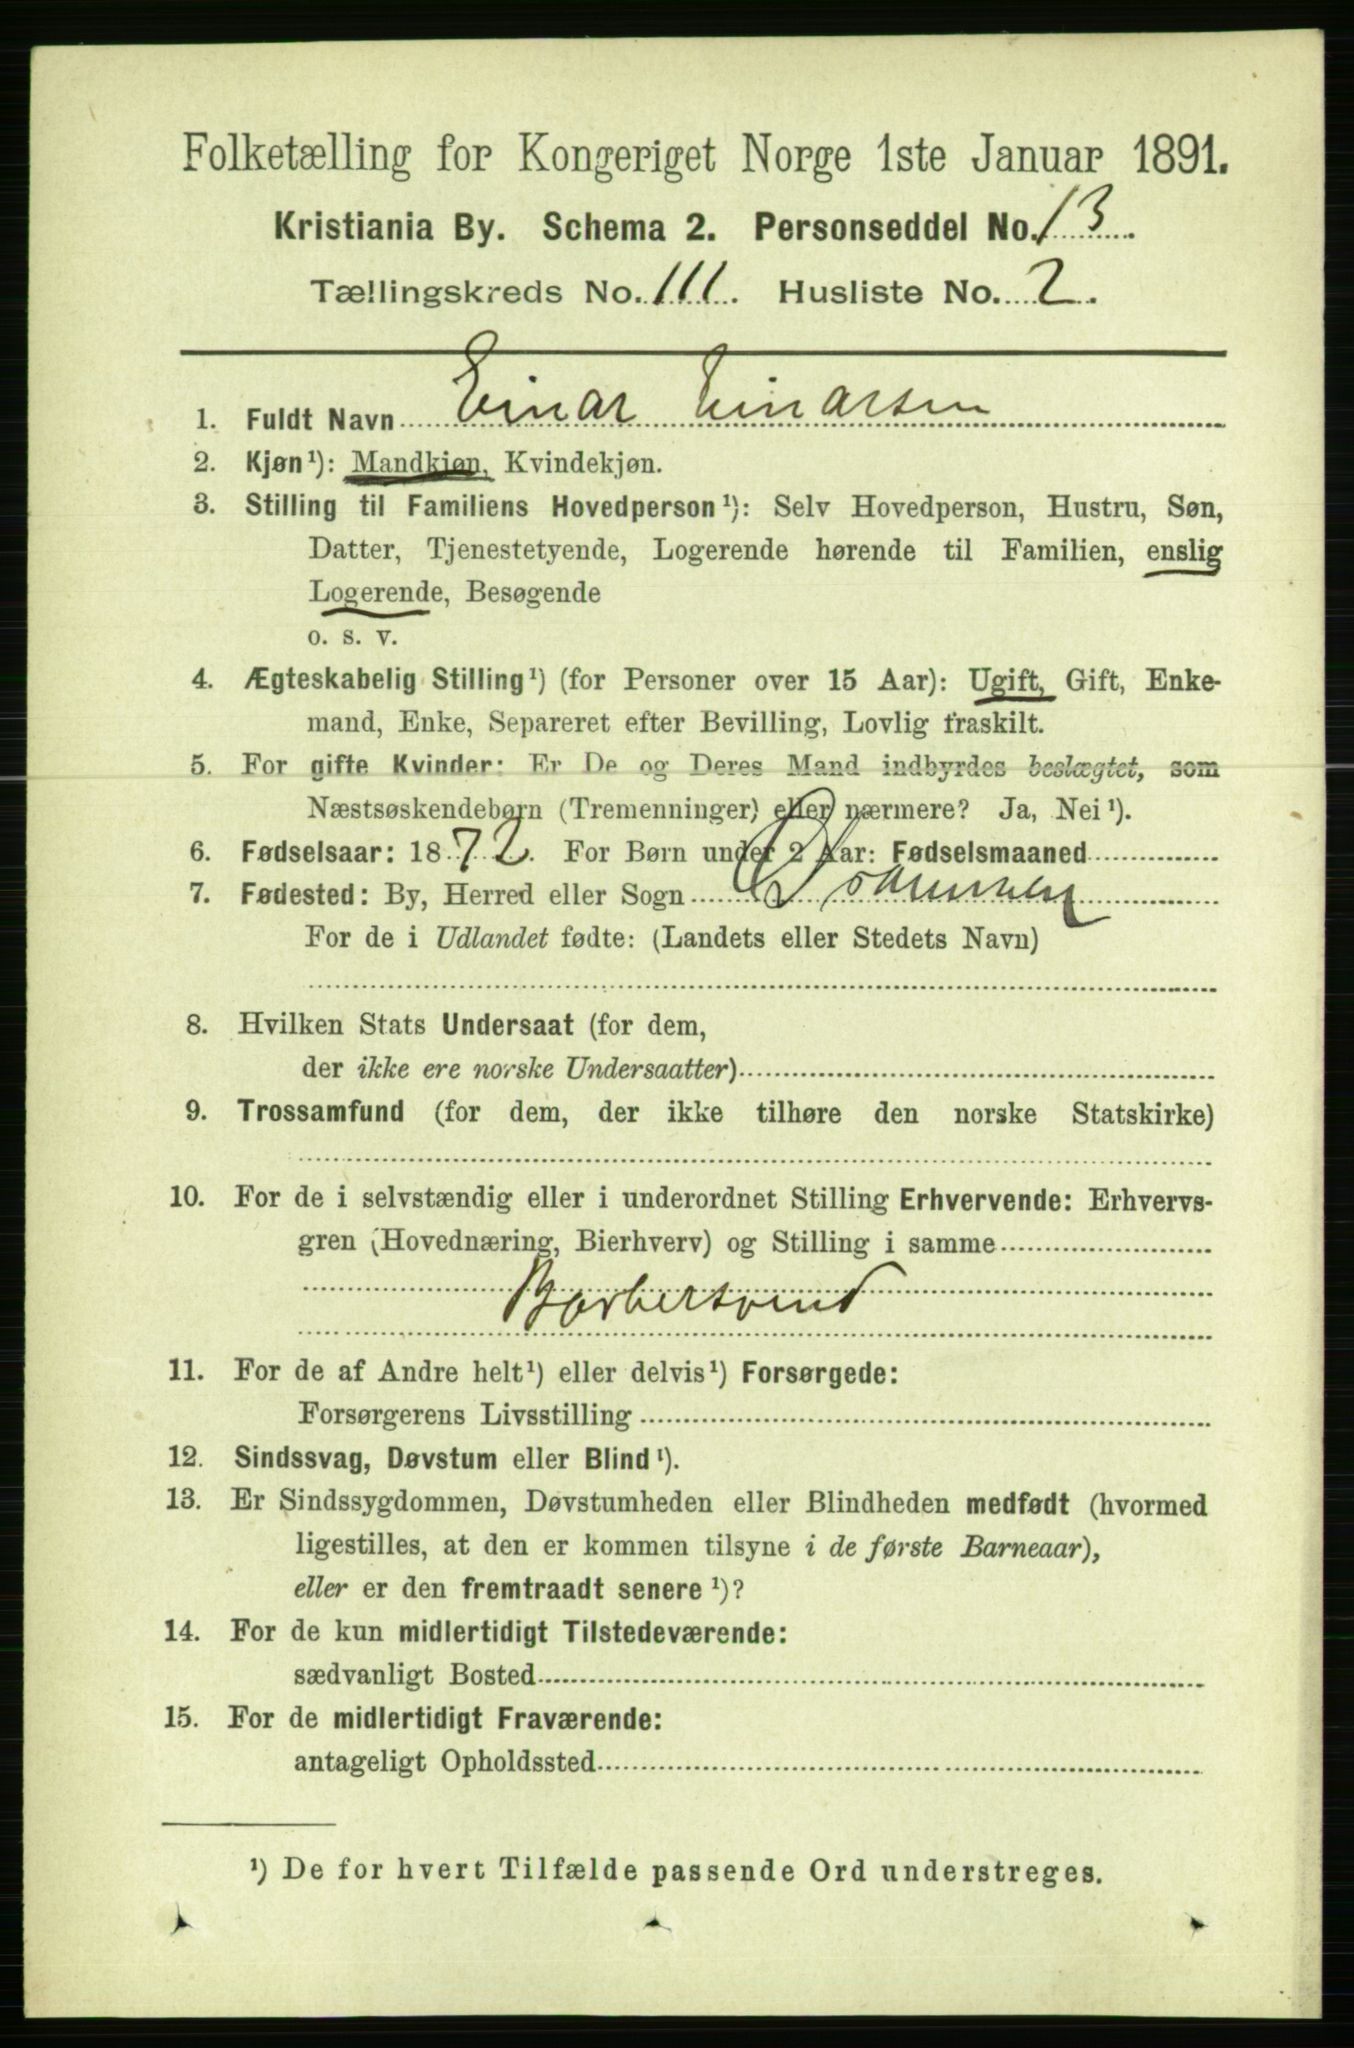 Folketælling for Kongeriget Norge 1ste Januar 1891.
Kristiania By. Schema 2. Personseddel No. 13.
Tællingskreds No. 111. Husliste No. 2.
1. Fuldt Navn Einar Einarsen
2. Kjøn¹): Mandkjøn, Kvindekjøn.
3. Stilling til Familiens Hovedperson¹): Selv Hovedperson, Hustru, Søn,
Datter, Tjenestetyende, Logerende hørende til Familien, enslig
Logerende, Besøgende
o. s. v.
4. Ægteskabelig Stilling¹) (for Personer over 15 Aar): Ugift, Gift, Enke-
mand, Enke, Separeret efter Bevilling, Lovlig fraskilt.
5. For gifte Kvinder: Er De og Deres Mand indbyrdes beslægtet, som
Næstsøskendebørn (Tremenninger) eller nærmere? Ja, Nei¹).
6. Fødselsaar: 1872. For Børn under 2 Aar: Fødselsmaaned
7. Fødested: By, Herred eller Sogn Drammen
For de i Udlandet fødte: (Landets eller Stedets Navn)
8. Hvilken Stats Undersaat (for dem,
der ikke ere norske Undersaatter)
9. Trossamfund (for dem, der ikke tilhøre den norske Statskirke)
10. For de i selvstændig eller i underordnet Stilling Erhvervende: Erhvervs-
gren (Hovednæring, Bierhverv) og Stilling i samme
Barbersvend
11. For de af Andre helt¹) eller delvis¹) Forsørgede:
Forsørgerens Livsstilling
12. Sindssvag, Døvstum eller Blind¹).
13. Er Sindssygdommen, Døvstumheden eller Blindheden medfødt (hvormed
ligestilles, at den er kommen tilsyne i de første Barneaar),
eller er den fremtraadt senere¹)?
14. For de kun midlertidigt Tilstedeværende:
sædvanligt Bosted
15. For de midlertidigt Fraværende:
antageligt Opholdssted
¹) De for hvert Tilfælde passende Ord understreges.